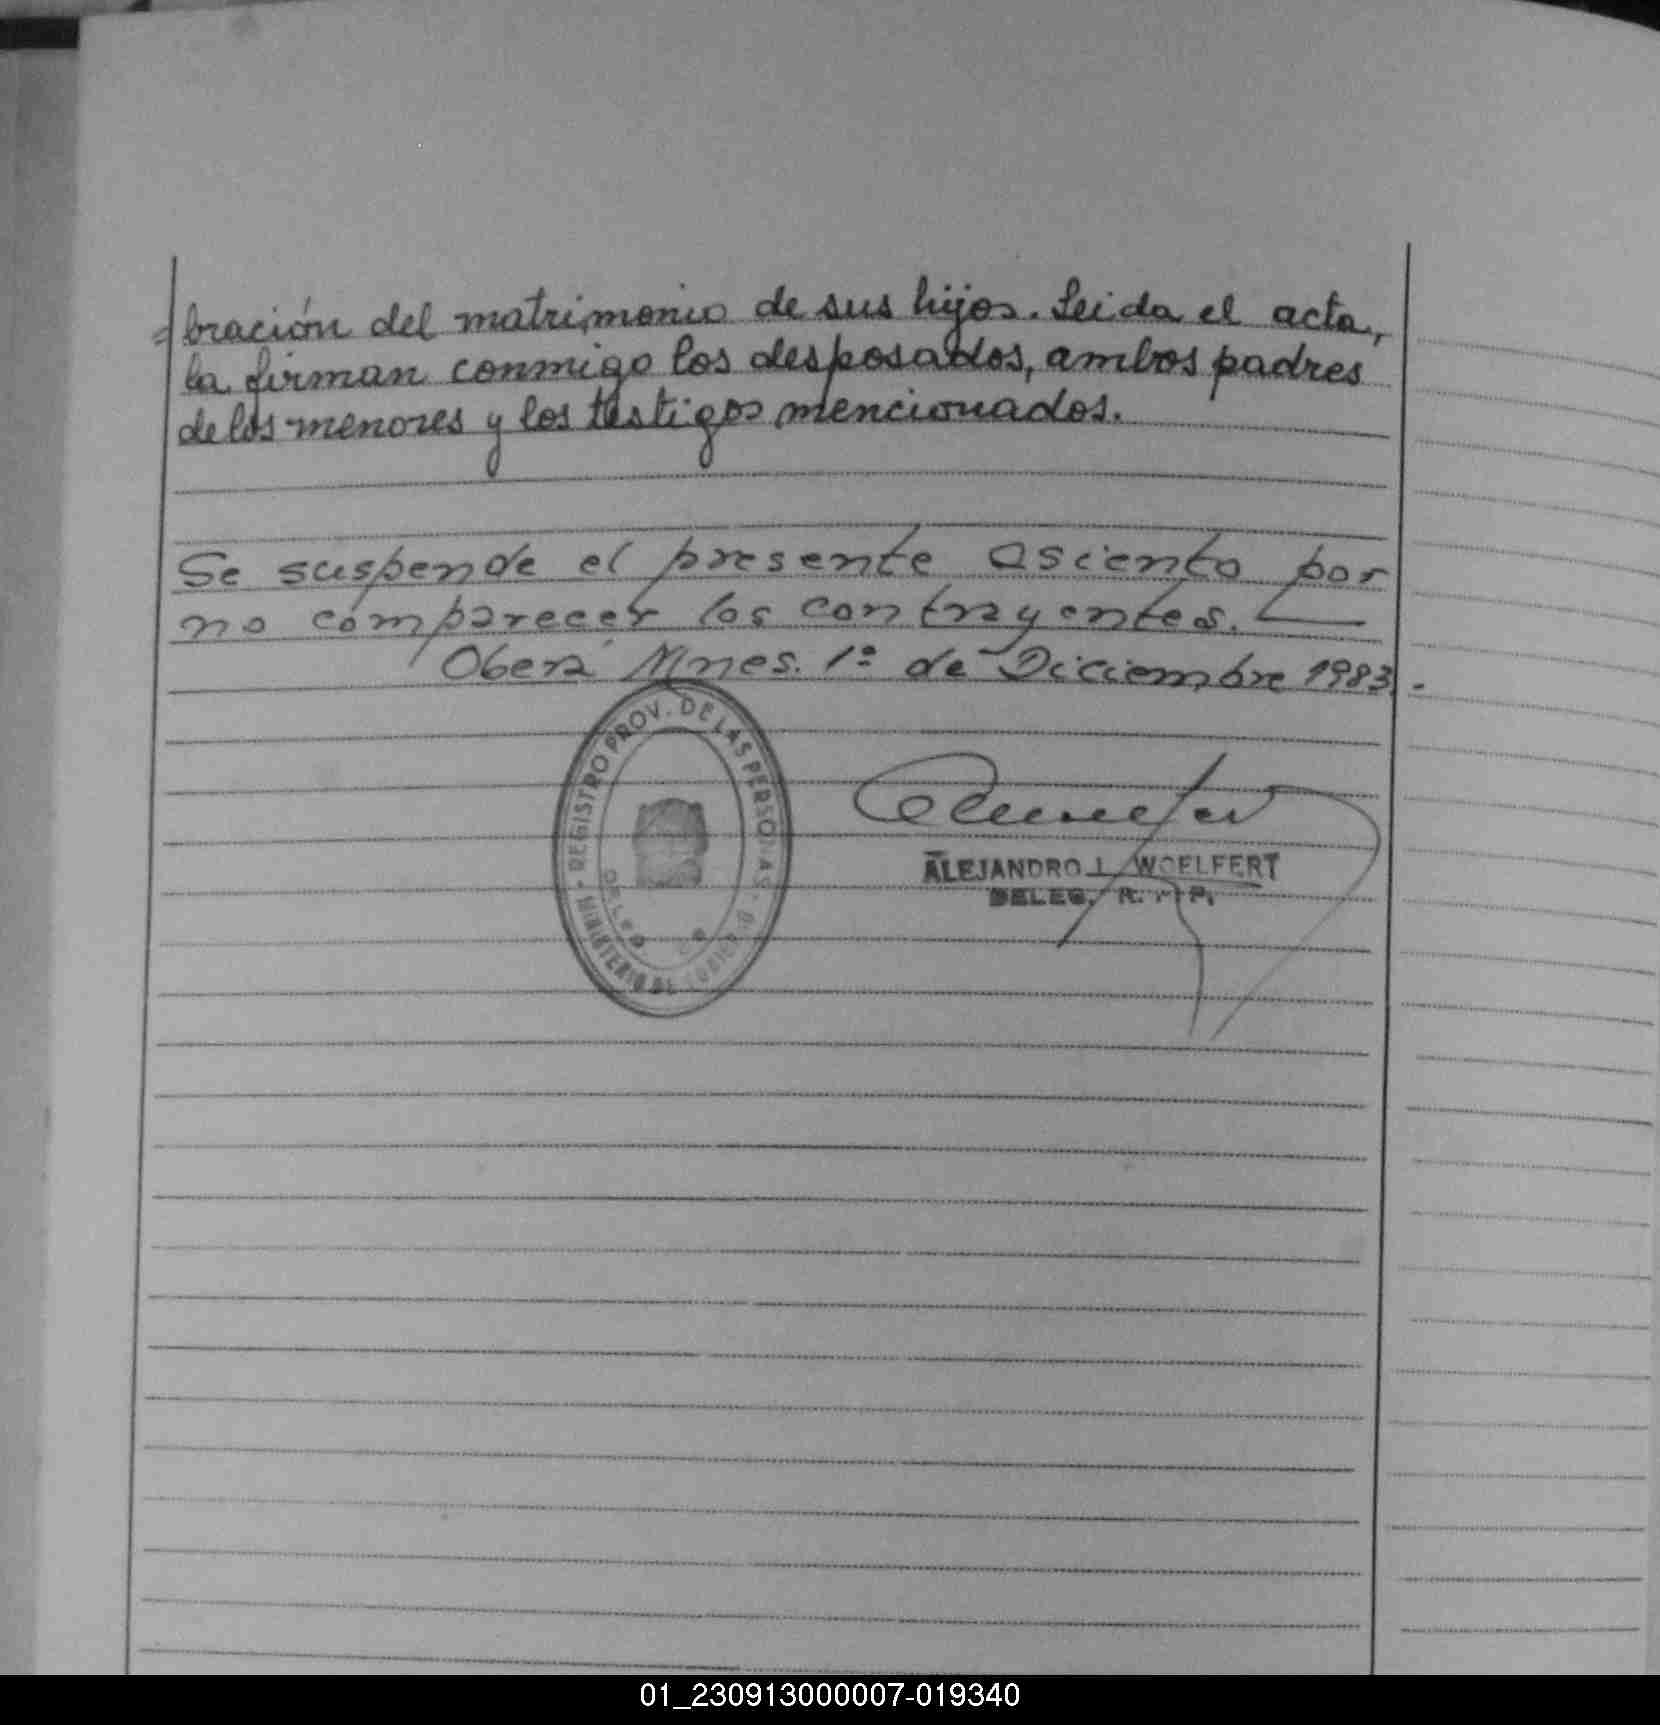 =bración del matrimonio de sus hijos. Leida el acta,
la firman conmigo los desposados, ambos padres
de los menores y los testigos mencionados.
Se suspende el presente asiento por
no comparecer los contrayentes.
Oberá Mnes. 1º de Diciembre 1983.-
REGISTRO PROV. DE LAS PERSONAS
MINISTERIO DE
ALEJANDRO L. WOELFERT
DELEG. R. P.
01_230913000007-019340